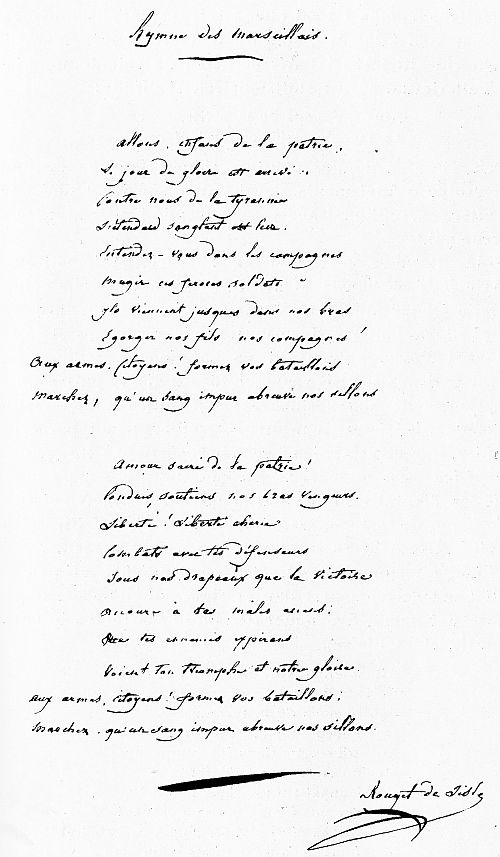 Hymne des marseillais.
allons, enfans de la patrie,
Le jour de gloire est arrivé :
Contre nous de la tyrannie
L'étendard sanglant est levé.
Entendez-vous dans les campagnes
mugir ces féroces soldats
Ils viennent jusques dans nos bras
Egorger nos fils nos compagnes !
Aux armes, Citoyens ! formez vos bataillons
marchez, qu'un sang impur abreuve nos sillons
Amour sacré de la patrie !
Conduis, soutiens nos bras vengeurs.
Liberté ! Liberté chérie
Combats avec tes défenseurs
Sous nos drapeaux que la victoire
accoure à tes mâles accens ;
Que tes ennemis expirans
Voient ton triomphe et notre gloire.
aux armes, Citoyens ! formez vos bataillons ;
marchez, qu'un sang impur abreuve nos sillons.
Rouget de Lisle